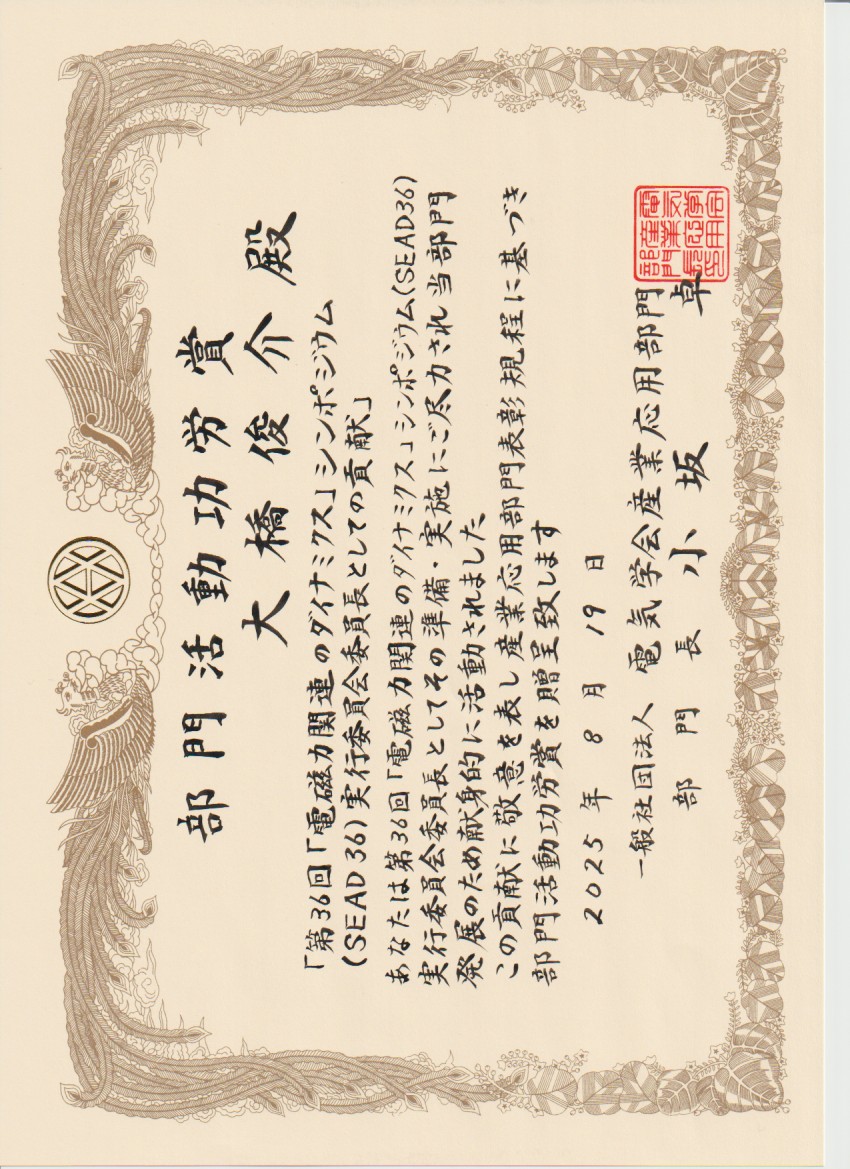 部門活動功労賞
大橋俊介 殿
「第36回「電磁力関連のダイナミクス」シンポジウム
(SEAD36)実行委員会委員長としての貢献」
あなたは第36回「電磁力関連のダイナミクス」シンポジウム(SEAD36)
実行委員会委員長としてその準備・実施にご尽力され当部門
発展のため献身的に活動されました
この貢献に敬意を表し産業応用部門表彰規程に基づき
部門活動功労賞を贈呈致します
2025年 8月 19日
一般社団法人 電気学会産業応用部門
部門長 小坂 卓